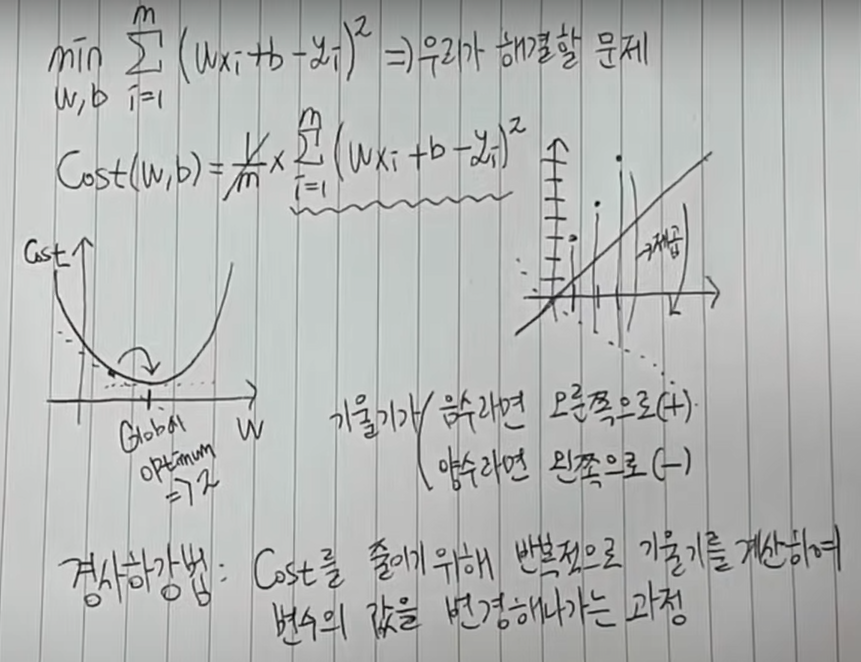 min w,b m Σ i=1 (wxi+b-yi)² => 우리가 해결할 문제
Cost(w,b) = 1/m × m Σ i=1 (wxi+b-yi)²
→제곱
Cost
W
Global
optimum
=> 2
기울기가 ( 음수라면 오른쪽으로(+)
양수라면 왼쪽으로(-)
경사하강법: Cost를 줄이기 위해 반복적으로 기울기를 계산하여
변수의 값을 변경해나가는 과정